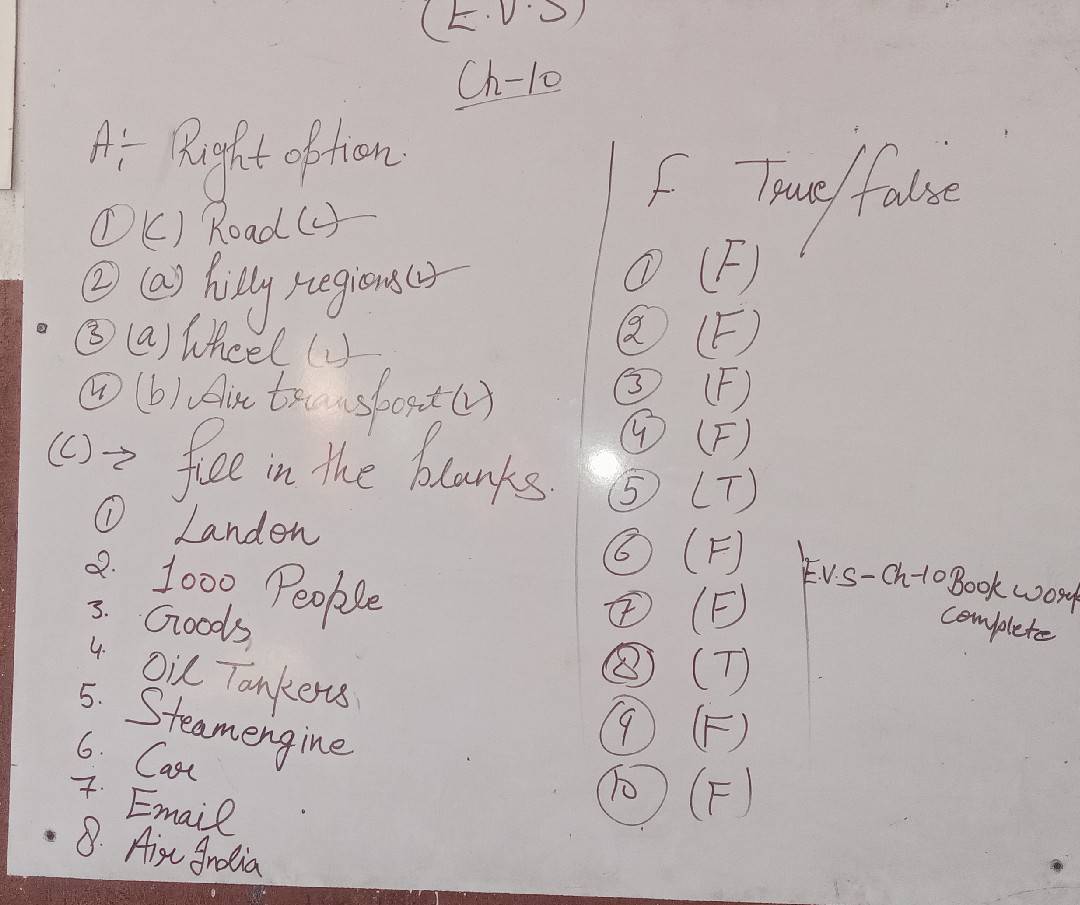 (E.V.S)
Ch-10
A:- Right option.
① (c) Road (✓)
② (a) hilly regions (✓)
③ (a) Wheel (✓)
④ (b) Air transport (✓)
(C) → fill in the blanks.
① Landon
2. 1000 People
3. Goods,
4. Oil Tankers,
5. Steamengine
6. Car
7. Email
8. Air India
F. True/false
① (F)
② (F)
③ (F)
④ (F)
⑤ (T)
⑥ (F)
⑦ (F)
⑧ (T)
⑨ (F)
⑩ (F)
E.V.S-Ch-10 Book work
complete